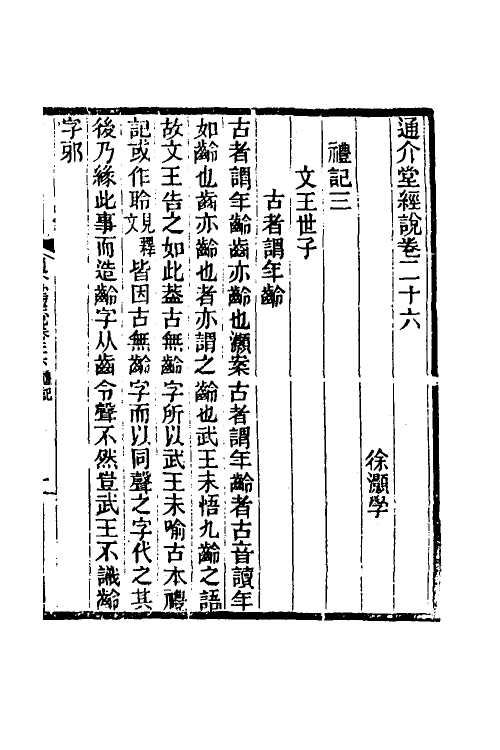 通介堂經說卷二十六
徐灝學
禮記三
文王世子
古者謂年齡
古者謂年齡齒亦齡也灝案古者謂年齡者古音讀年
如齡也齒亦齡也者亦謂之齡也武王未悟九齡之語
故文王告之如此葢古無齡字所以武王未喻古本禮
記或作聆見釋文皆因古無齡字而以同聲之字代之其
後乃緣此事而造齡字从齒令聲不然豈武王不識齡
字邪